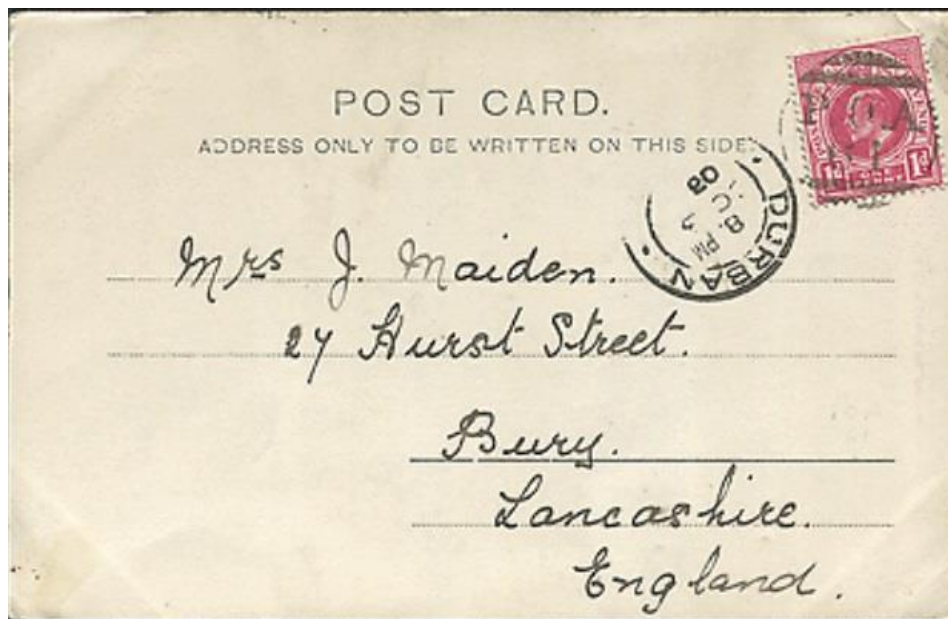 POST CARD.
ADDRESS ONLY TO BE WRITTEN ON THIS SIDE.
DURBAN
8. PM
03
1d 1d
Mrs J. Maiden.
27 Hurst Street.
Bury.
Lancashire.
England.